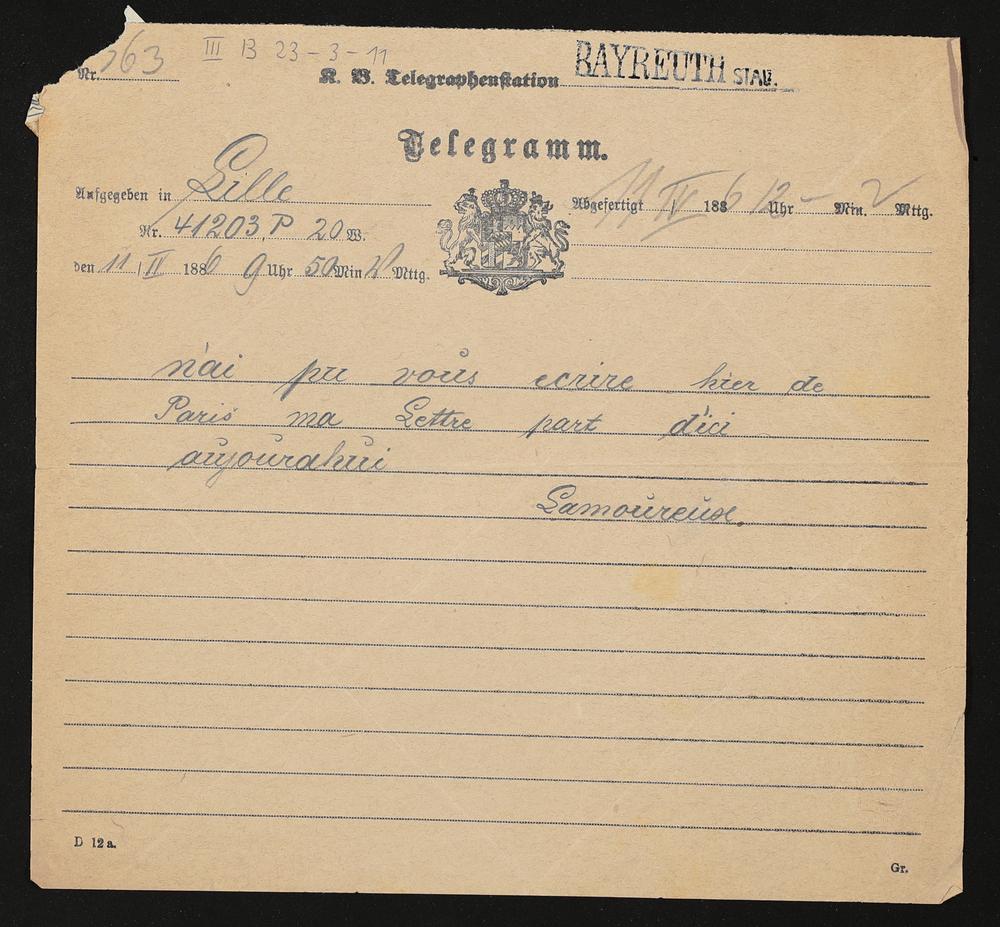 Nr. 763 III B 23-3-11
K. B. Telegraphenstation BAYREUTH STADT.
Telegramm.
Aufgegeben in Lille
Nr. 41203, P 20 W.
den 11/IV 1886 9 Uhr 50 Min V Mttg.
Abgefertigt 11/IV 1886 12 Uhr - Min. V Mttg.
n'ai pu vous ecrire hier de
Paris ma Lettre part d'ici
aujourdhui
Lamoureux.
D 12a.
Gr.